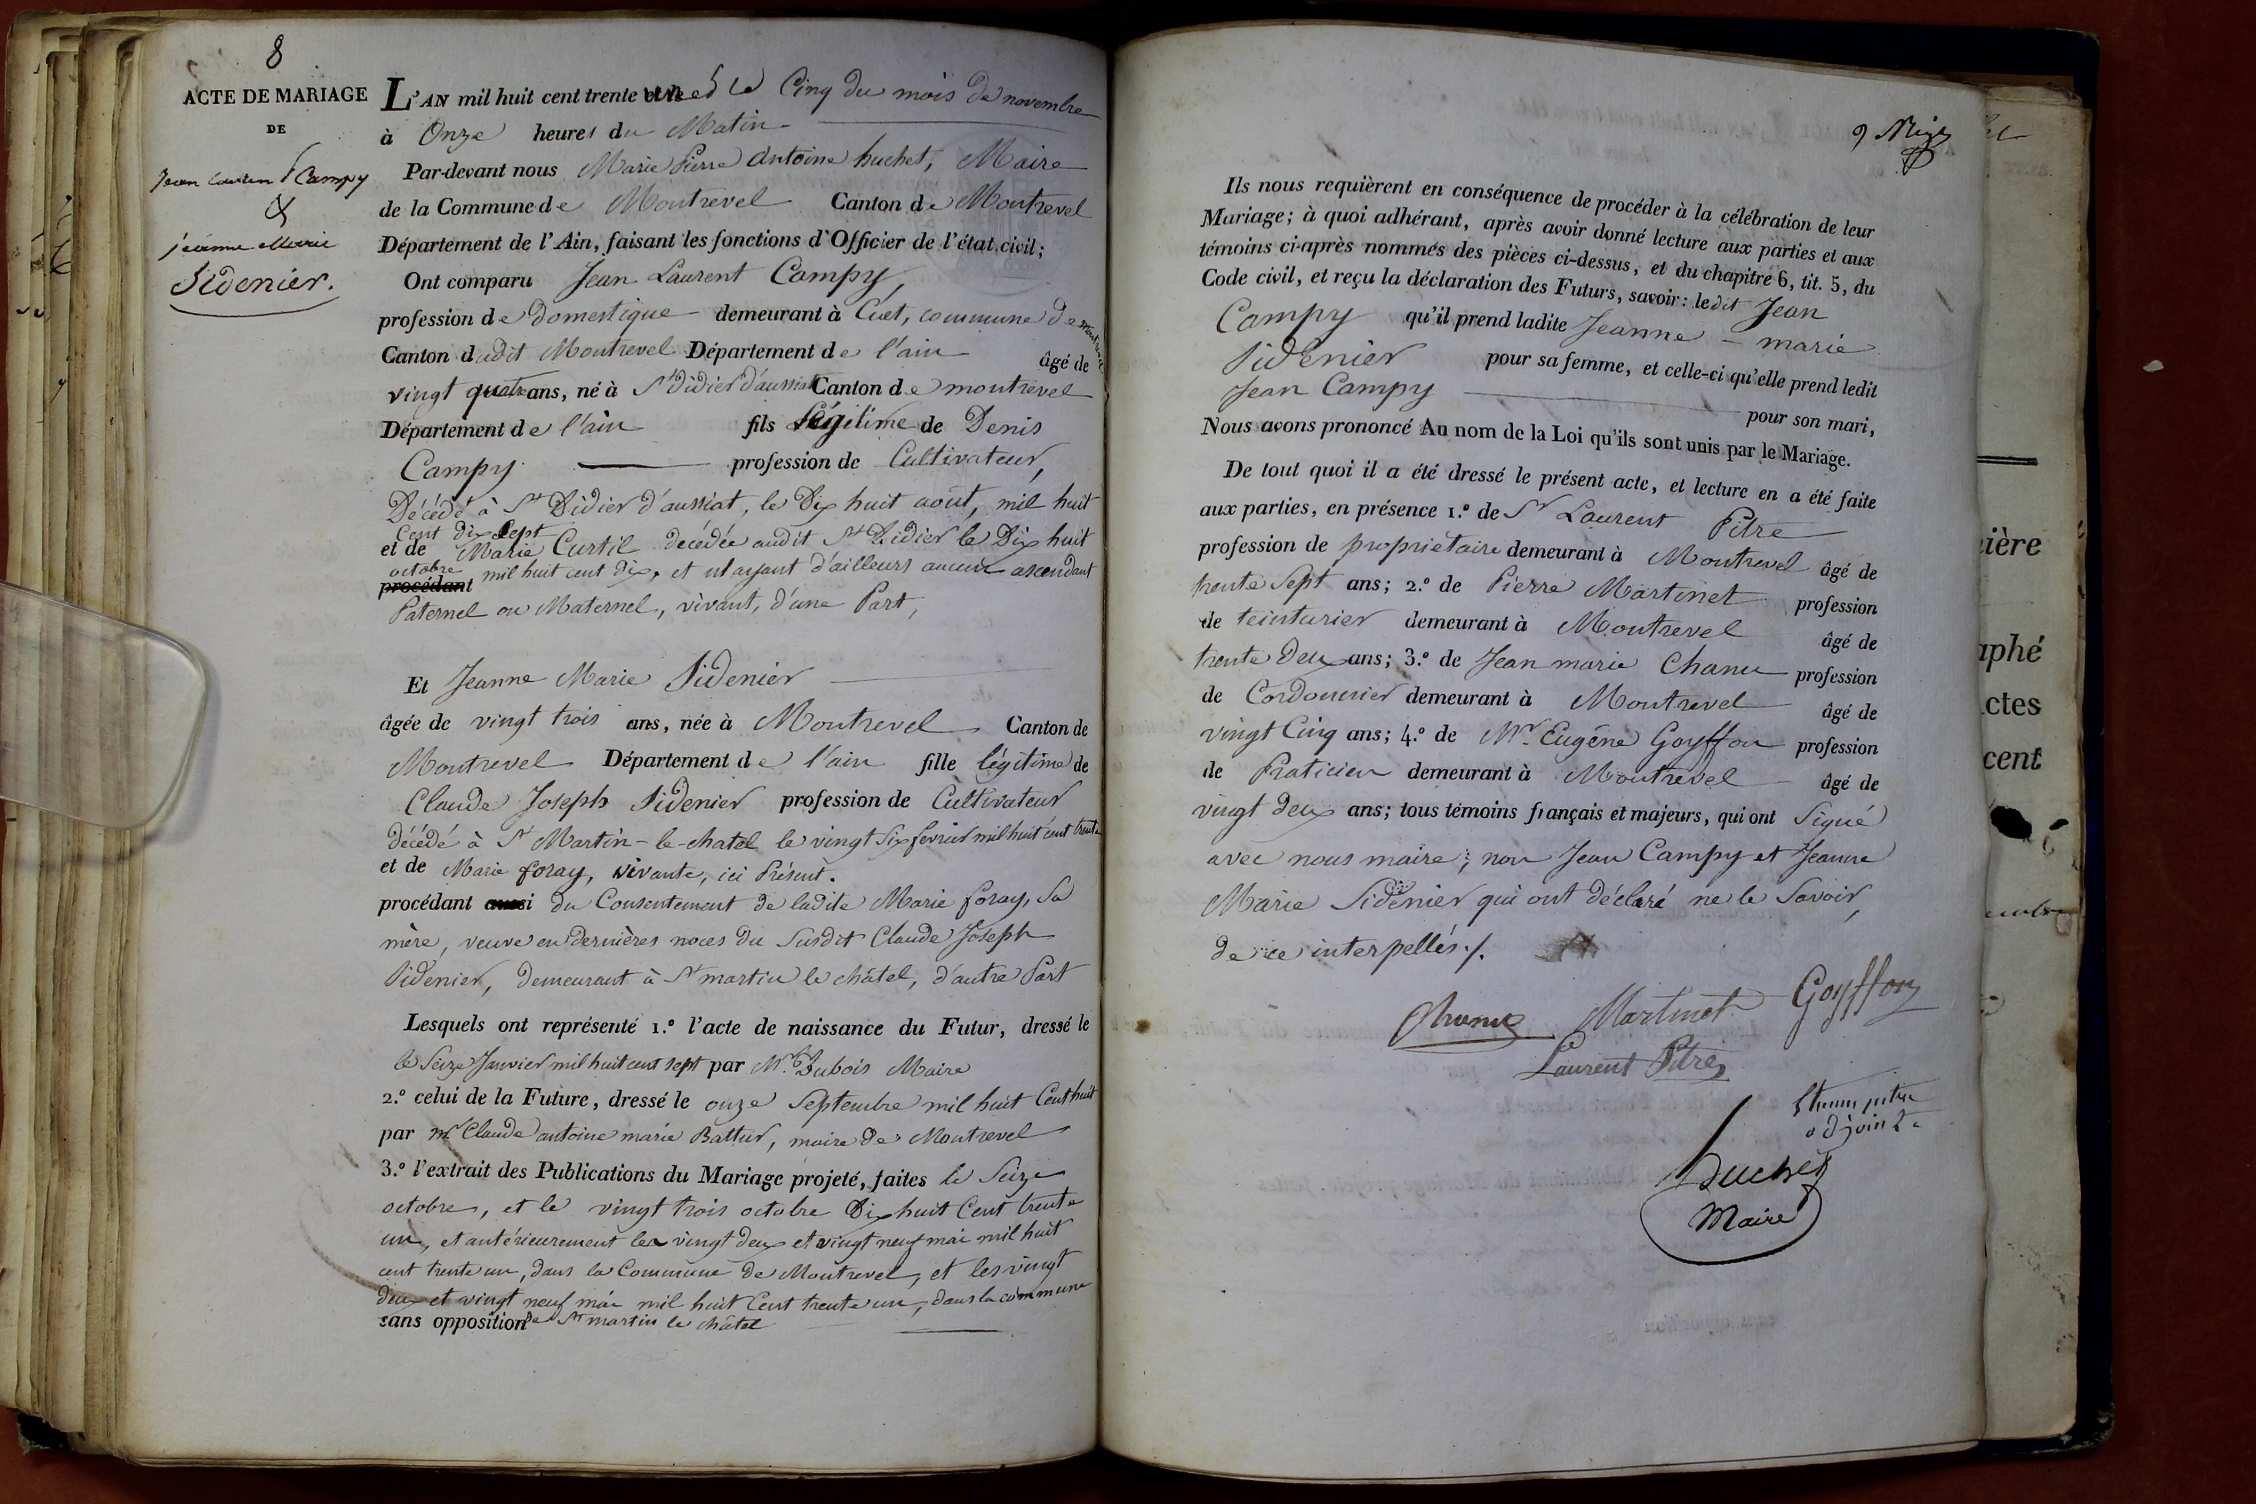 8
ACTE DE MARIAGE
DE
Jean Laurent Campy
&
jeanne Marie
Sidenier.
L'AN mil huit cent trente un et le Cinq du mois de novembre
à Onze heures du Matin
Par-devant nous Marie Pierre Antoine huchet, Maire
de la Commune de Montrevel Canton de Montrevel
Département de l'Ain, faisant les fonctions d'Officier de l'état civil;
Ont comparu Jean Laurent Campy,
profession de domestique demeurant à Cuet, commune de Montrevel
Canton dudit Montrevel Département de l'ain âgé de
vingt quatre ans, né à St didier d'aussiat Canton de montrevel
Département de l'ain fils Légitime de Denis
Campy profession de Cultivateur,
Décédé à St Didier d'aussiat, le Dix huit août, mil huit
Cent dix Sept
et de Marie Curtil décédée audit St Didier le Dix huit
octobre mil huit cent dix, et n'ayant d'ailleurs aucun ascendant
procédant
Paternel ou Maternel, vivant, d'une Part,
Et Jeanne Marie Sidenier
âgée de vingt trois ans, née à Montrevel Canton de
Montrevel Département de l'ain fille légitime de
Claude Joseph Sidenier profession de Cultivateur
décédé à St Martin-le-chatel le vingt Six fevrier mil huit cent trente
et de Marie foray, vivante, ici Présent.
procédant aussi du Consentement de ladite Marie foray, Sa
mère, veuve en dernières noces du Susdit Claude Joseph
Sidenier, demeurant à St martin le châtel, d'autre Part
Lesquels ont représenté 1.° l'acte de naissance du Futur, dressé le
le Seize Janvier mil huit cent sept par Mr. Dubois Maire
2.° celui de la Future, dressé le onze Septembre mil huit Cent huit
par mr Claude antoine marie Battur, maire de Montrevel
3.° l'extrait des Publications du Mariage projeté, faites le Seize
octobre, et le vingt trois octobre Dix huit Cent trente
un, et antérieurement les vingt deux et vingt neuf mai mil huit
cent trente un, dans la Commune de Montrevel, et les vingt
deux et vingt neuf mai mil huit Cent trente un, dans la commune
sans opposition de St martin le châtel
9
Ils nous requièrent en conséquence de procéder à la célébration de leur
Mariage; à quoi adhérant, après avoir donné lecture aux parties et aux
témoins ci-après nommés des pièces ci-dessus, et du chapitre 6, tit. 5, du
Code civil, et reçu la déclaration des Futurs, savoir: ledit Jean
Campy qu'il prend ladite Jeanne - marie
Sidenier pour sa femme, et celle-ci qu'elle prend ledit
Jean Campy pour son mari,
Nous avons prononcé Au nom de la Loi qu'ils sont unis par le Mariage.
De tout quoi il a été dressé le présent acte, et lecture en a été faite
aux parties, en présence 1.° de Sr Laurent Pitre
profession de propriétaire demeurant à Montrevel âgé de
trente Sept ans; 2.° de Pierre Martinet profession
de teinturier demeurant à Montrevel âgé de
trente Deux ans; 3.° de Jean marie Chanu profession
de Cordonnier demeurant à Montrevel âgé de
vingt Cinq ans; 4.° de Mr. Eugène Goyffon profession
de Praticien demeurant à Montrevel âgé de
vingt deux ans; tous témoins français et majeurs, qui ont Signé
avec nous maire; non Jean Campy et Jeanne
Marie Sidenier qui ont déclaré ne le Savoir,
de ce interpellés ./.
Chanu Martinet Goyffon
Laurent Pitre
pitre
adjoint
huchet
Maire
ière
aphé
ctes
cent